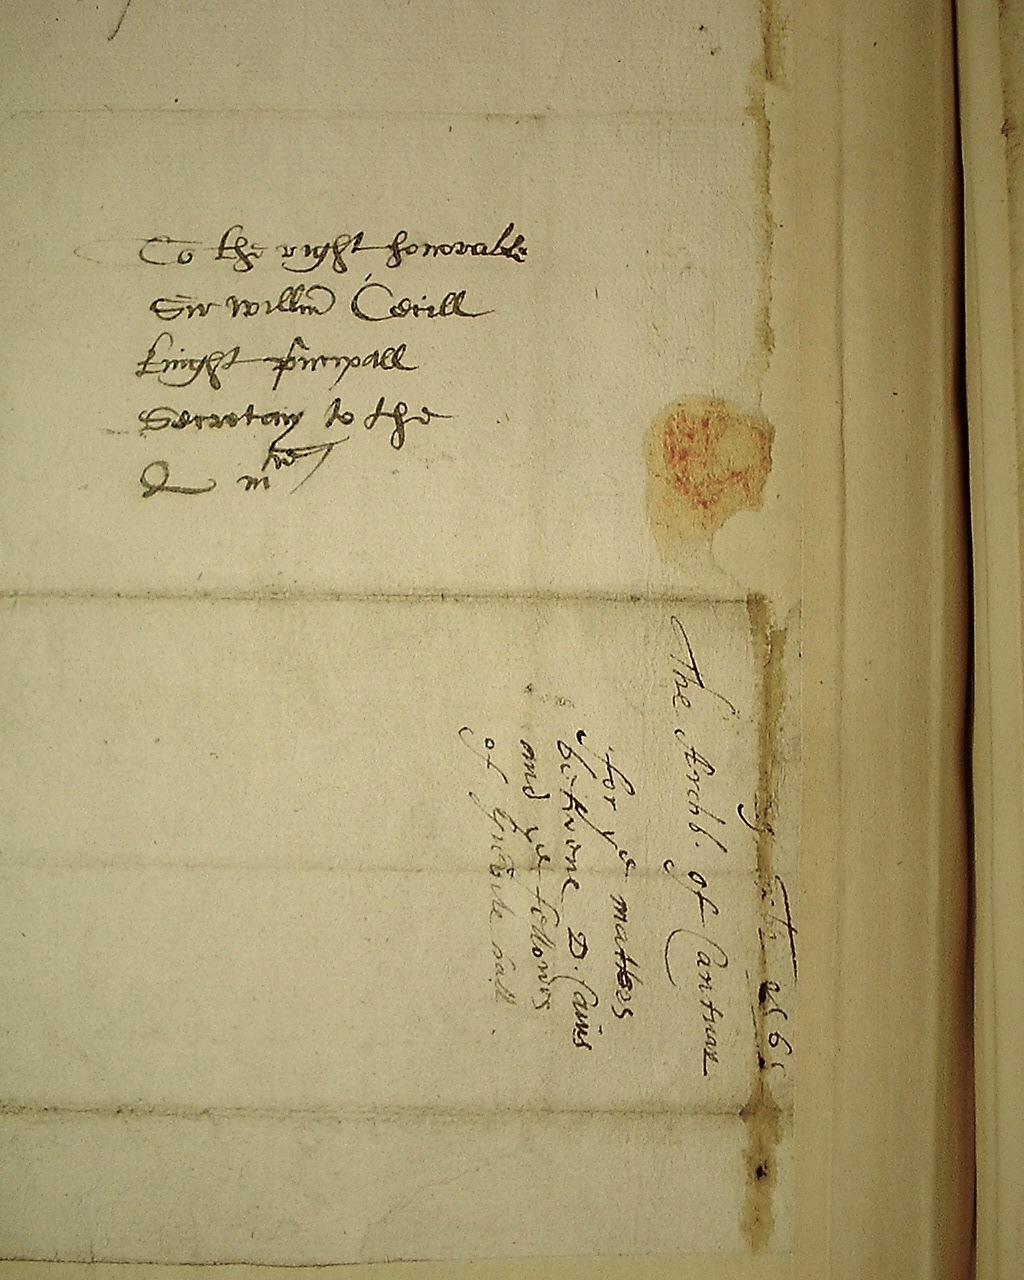 To the right honorable
Sir Willm Cecill
knight principall
Secretary to the
Q mtie
1565
The Archb. of Cantuar
for ye matters
betwene D. Caius
and ye fellows
of